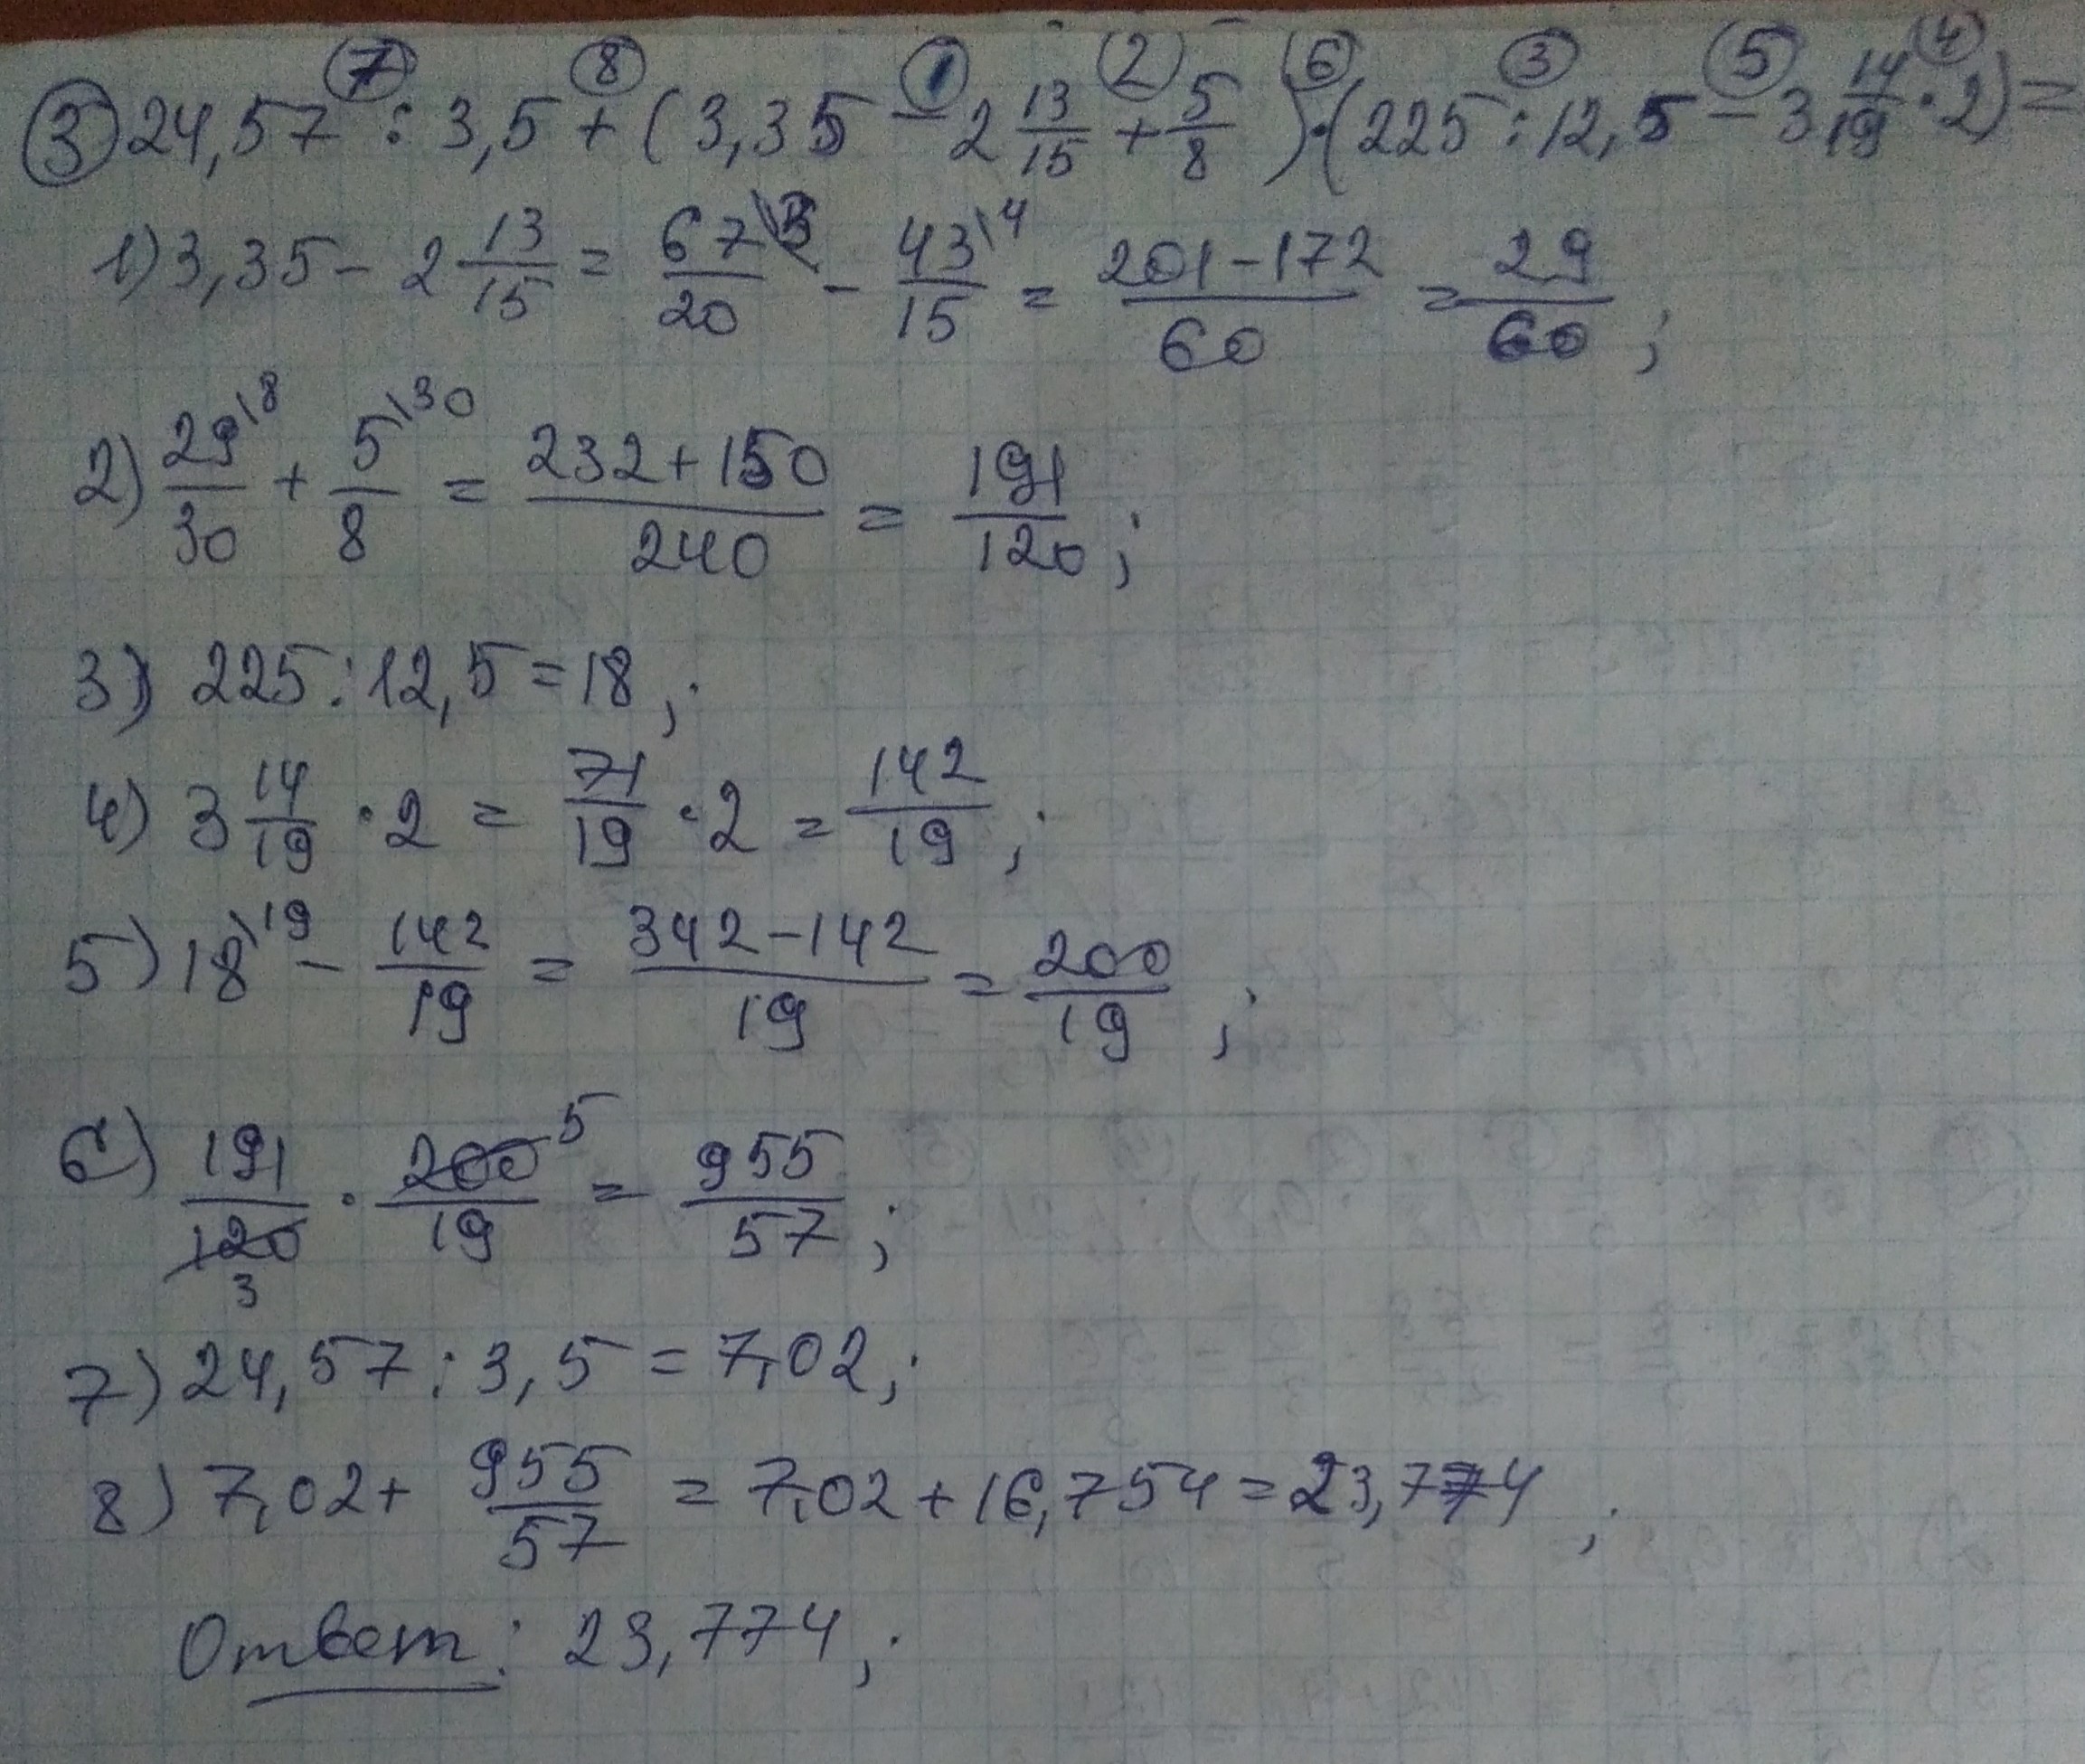 ③ 24,57 : 3,5 + (3,35 - 2 13/15 + 5/8) · (225 : 12,5 - 3 14/19 · 2) =
1) 3,35 - 2 13/15 = 67\3/20 - 43\4/15 = 201-172/60 = 29/60;
2) 29\8/30 + 5\30/8 = 232+150/240 = 191/120;
3) 225 : 12,5 = 18;
4) 3 14/19 · 2 = 71/19 · 2 = 142/19;
5) 18\19 - 142/19 = 342-142/19 = 200/19;
6) 191/120 3 · 200 5/19 = 955/57;
7) 24,57 : 3,5 = 7,02;
8) 7,02 + 955/57 = 7,02 + 16,754 = 23,774;
Ответ: 23,774;